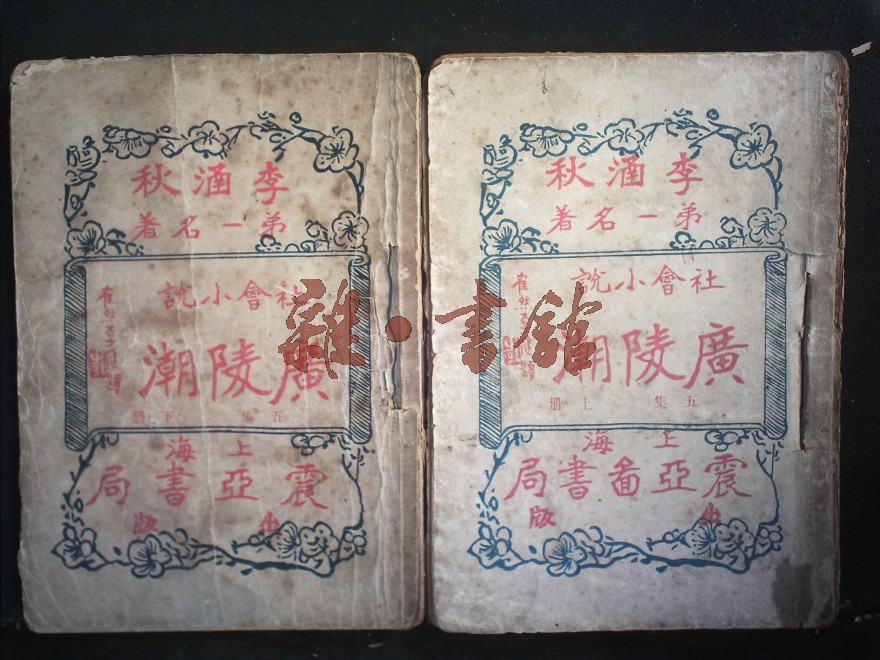 李涵秋
弟一名著
社會小說
廣陵潮
五集下册
上海
震亞書局
出版
李涵秋
弟一名著
社會小說
廣陵潮
五集上册
上海
震亞啚書局
出版
雜·書館